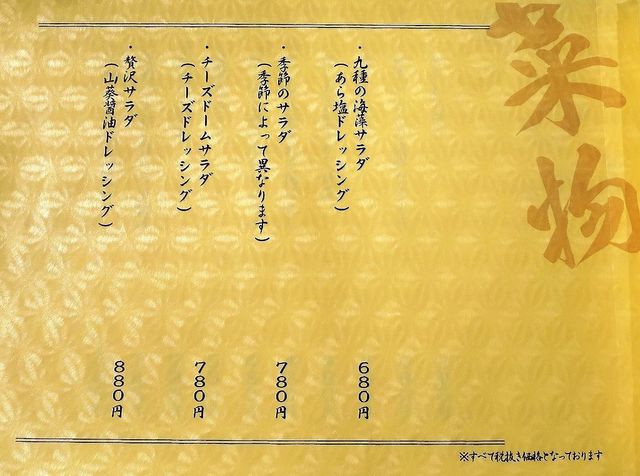 菜物
・九種の海藻サラダ
(あら塩ドレッシング)
680円
・季節のサラダ
(季節によって異なります)
780円
・チーズドームサラダ
(チーズドレッシング)
780円
・贅沢サラダ
(山葵醤油ドレッシング)
880円
※すべて税抜き価格となっております